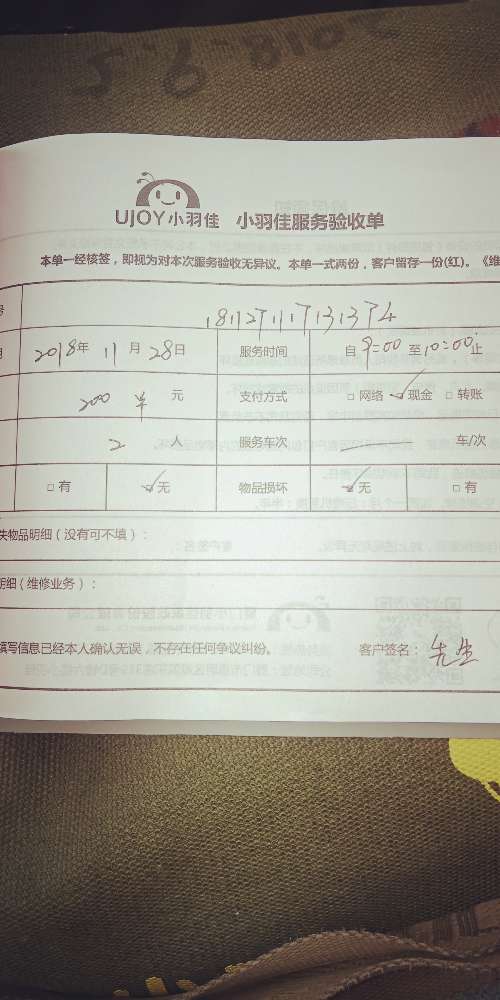 2018.9.5
UJOY小羽佳 小羽佳服务验收单
本单一经核签，即视为对本次服务验收无异议。本单一式两份，客户留存一份(红)。《维
号 181127111713374
2018年 11 月 28日 服务时间 自 9:00 至 10:00 止
200 元 支付方式 □ 网络 ✓ 现金 □ 转账
2 人 服务车次 车/次
□ 有 ✓ 无 物品损坏 ✓ 无 □ 有
失物品明细（没有可不填）：
明细（维修业务）：
填写信息已经本人确认无误，不存在任何争议纠纷。 客户签名： 先生